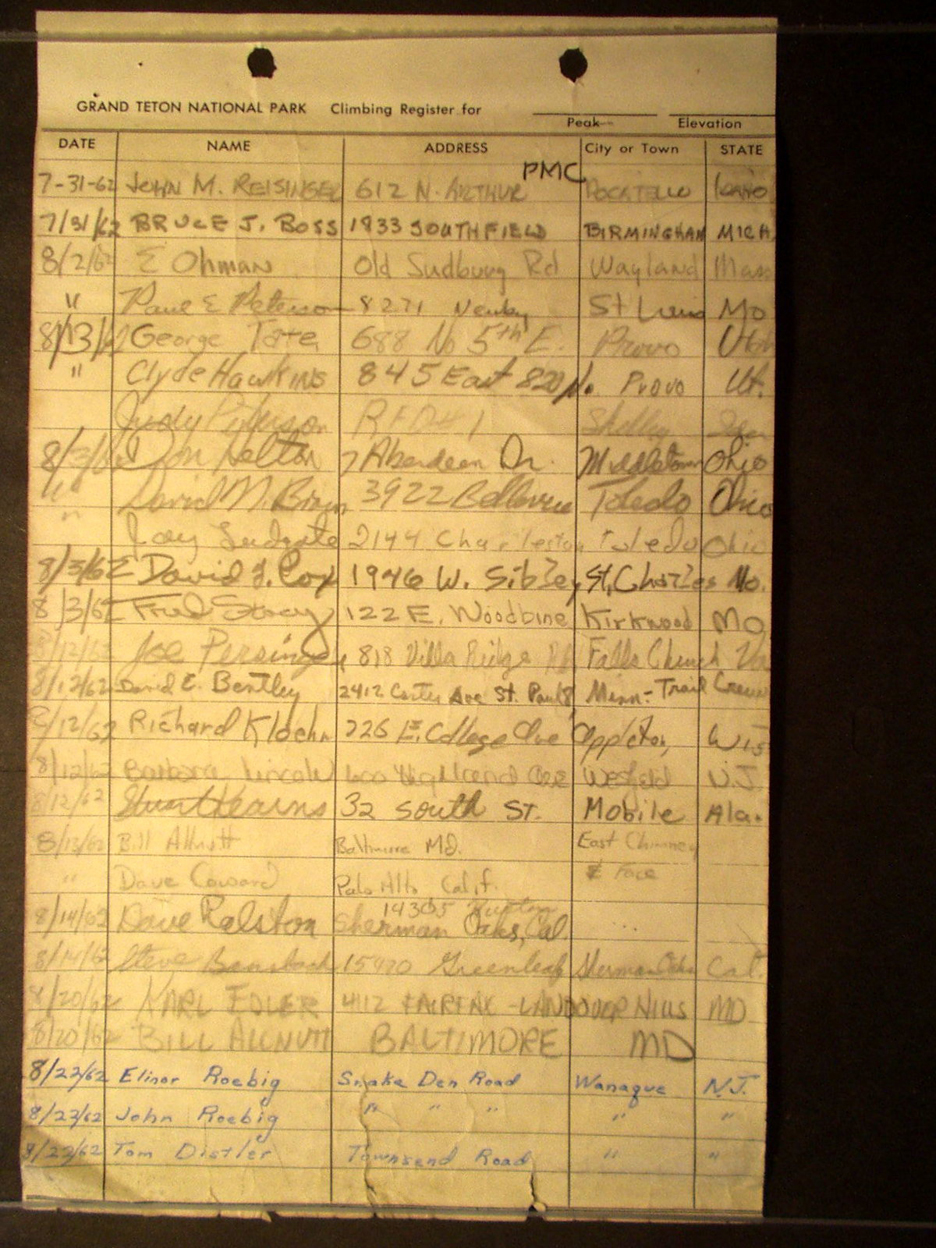 GRAND TETON NATIONAL PARK Climbing Register for
Peak Elevation
DATE NAME ADDRESS City or Town STATE
PMC
7-31-62 JOHN M. REISINGER 612 N. ARTHUR POCATELLO IDAHO
7/31/62 BRUCE J. BOSS 1833 SOUTHFIELD BIRMINGHAM MICH.
8/2/62 E Ohman Old Sudbury Rd Wayland Mass
" Paul E Peterson 8271 Newby St Louis Mo
8/13/62 George Tate 688 No 5th E. Provo Utah
" Clyde Hawkins 845 East 820 N. Provo Ut.
Judy Peterson RFD #1 Shelley
8/3/62 Don Helton 7 Aberdeen Dr. Middletown Ohio
" David M. 3922 Bellevue Toledo Ohio
" Ludgate 2144 Charleston Toledo Ohio
8/3/62 E David J. Cox 1946 W. Sibley St. Charles Mo.
8/3/62 Fred Stacy 122 E. Woodbine Kirkwood Mo
8/12/62 Joe Persinger 818 Villa Ridge Rd Falls Church Va
8/12/62 David E. Bentley 2412 Carter Ave St. Paul 8, Minn - Trail Crew
8/12/62 Richard Kloehn 226 E. College Ave Appleton, Wis
8/12/62 Barbara Lincoln 600 Highland Ave Westfield N.J.
8/12/62 Stuart Hearns 32 South ST. Mobile Ala.
8/13/62 Bill Allnutt Baltimore Md. East Chimney
" Dave Coward Palo Alto Calif. & Face
14305
8/14/62 Dave Ralston Sherman Oaks, Cal.
8/14/62 Steve 15920 Greenleaf Sherman Oaks Cal.
8/20/62 KARL EDLER 4112 FAIRFAX - LANDOVER HILLS MD
8/20/62 BILL ALLNUTT BALTIMORE MD
8/22/62 Elinor Roebig Snake Den Road Wanaque N.J.
8/22/62 John Roebig " " " " "
8/22/62 Tom Distler Townsend Road " "